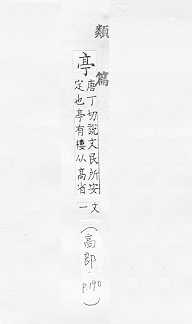 類
篇
亭
唐丁切說文民所安
定也亭有樓从高省
文一
(高部
p.190)